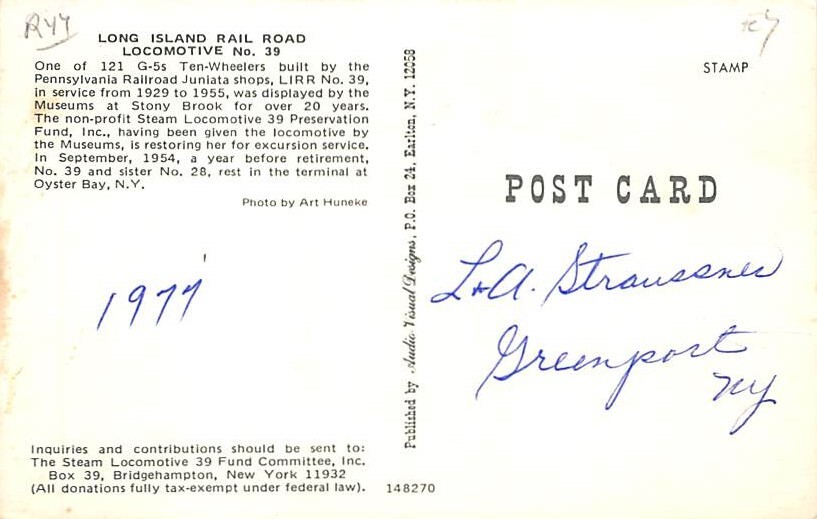 R44
LONG ISLAND RAIL ROAD
LOCOMOTIVE No. 39
One of 121 G-5s Ten-Wheelers built by the
Pennsylvania Railroad Juniata shops, LIRR No. 39,
in service from 1929 to 1955, was displayed by the
Museums at Stony Brook for over 20 years.
The non-profit Steam Locomotive 39 Preservation
Fund, Inc., having been given the locomotive by
the Museums, is restoring her for excursion service.
In September, 1954, a year before retirement,
No. 39 and sister No. 28, rest in the terminal at
Oyster Bay, N.Y.
Photo by Art Huneke
1977
Inquiries and contributions should be sent to:
The Steam Locomotive 39 Fund Committee, Inc.
Box 39, Bridgehampton, New York 11932
(All donations fully tax-exempt under federal law).
148270
Published by Audio Visual Designs, P.O. Box 24, Earlton, N.Y. 12058
STAMP
POST CARD
L+A. Straussner
Greenport
NY